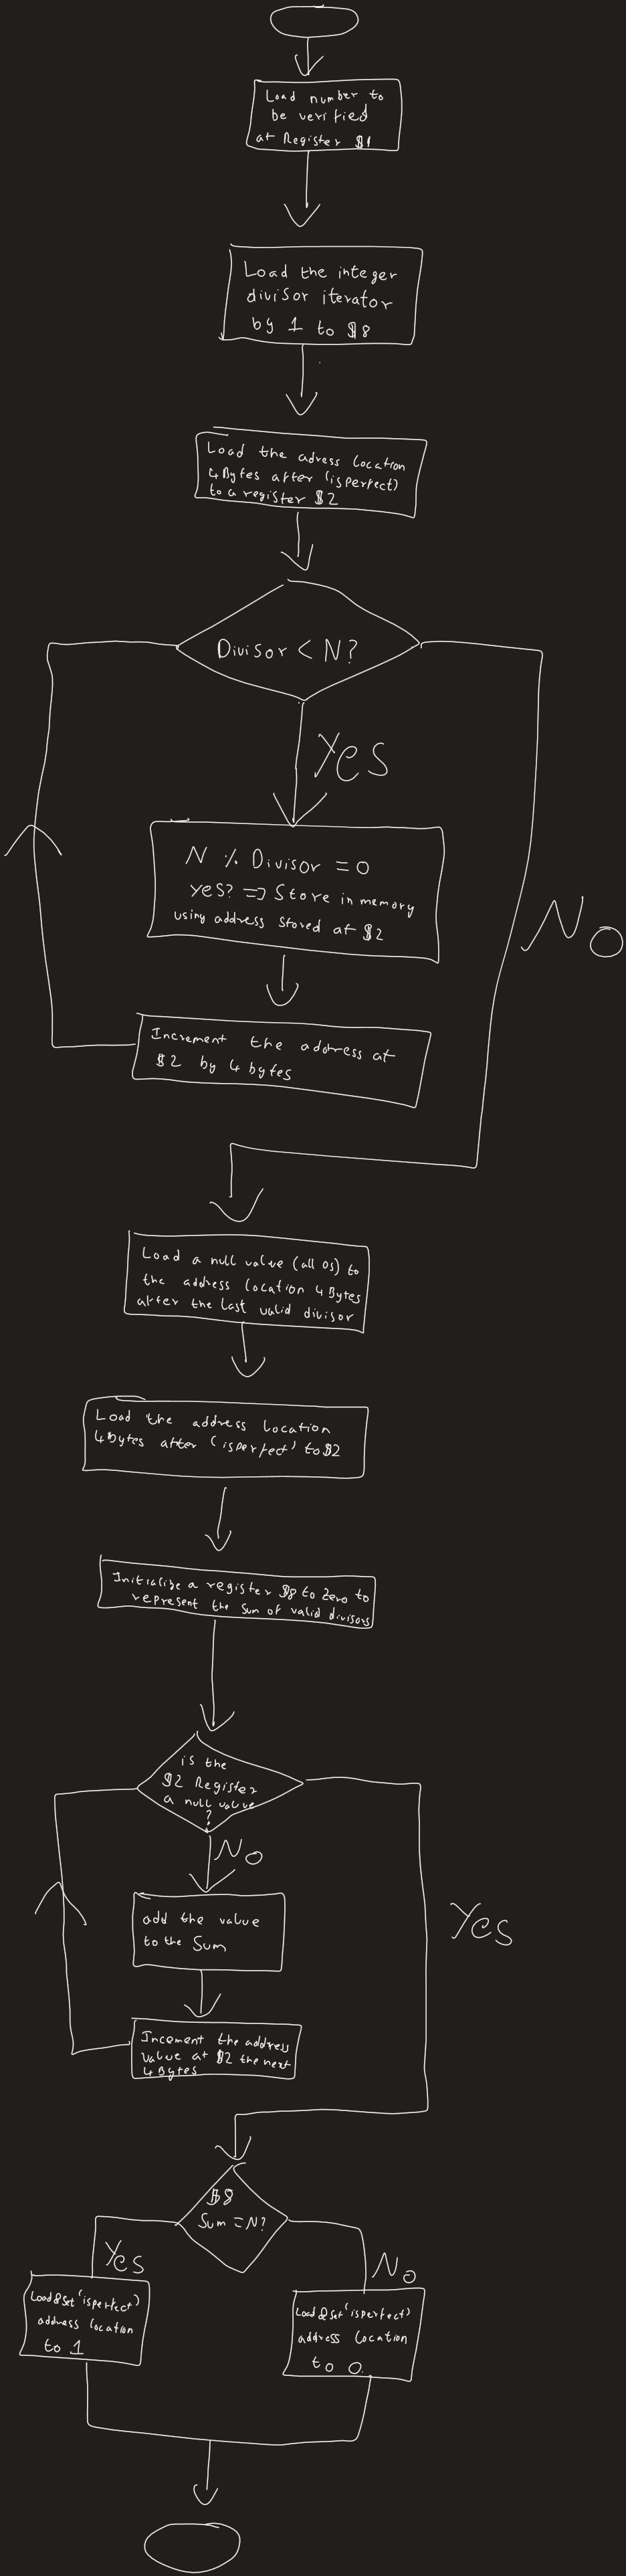 Load number to
be verified
at Register $1
Load the integer
divisor iterator
by 1 to $8
Load the adress location
4Bytes after (isperfect)
to a register $2
Divisor < N?
Yes
N % Divisor = 0
Yes? => Store in memory
using address stored at $2
No
Increment the address at
$2 by 4 bytes
Load a null value (all 0s) to
the address location 4 Bytes
after the last valid divisor
Load the address location
4Bytes after (isperfect) to $2
Initialize a register $8 to zero to
represent the sum of valid divisors
is the
$2 Register
a null value
?
No
add the value
to the Sum
Yes
Incement the address
value at $2 the next
4 Bytes
$8
Sum = N?
Yes
No
Load&Set (isperfect)
address location
to 1
Load&Set (isperfect)
address location
to 0.